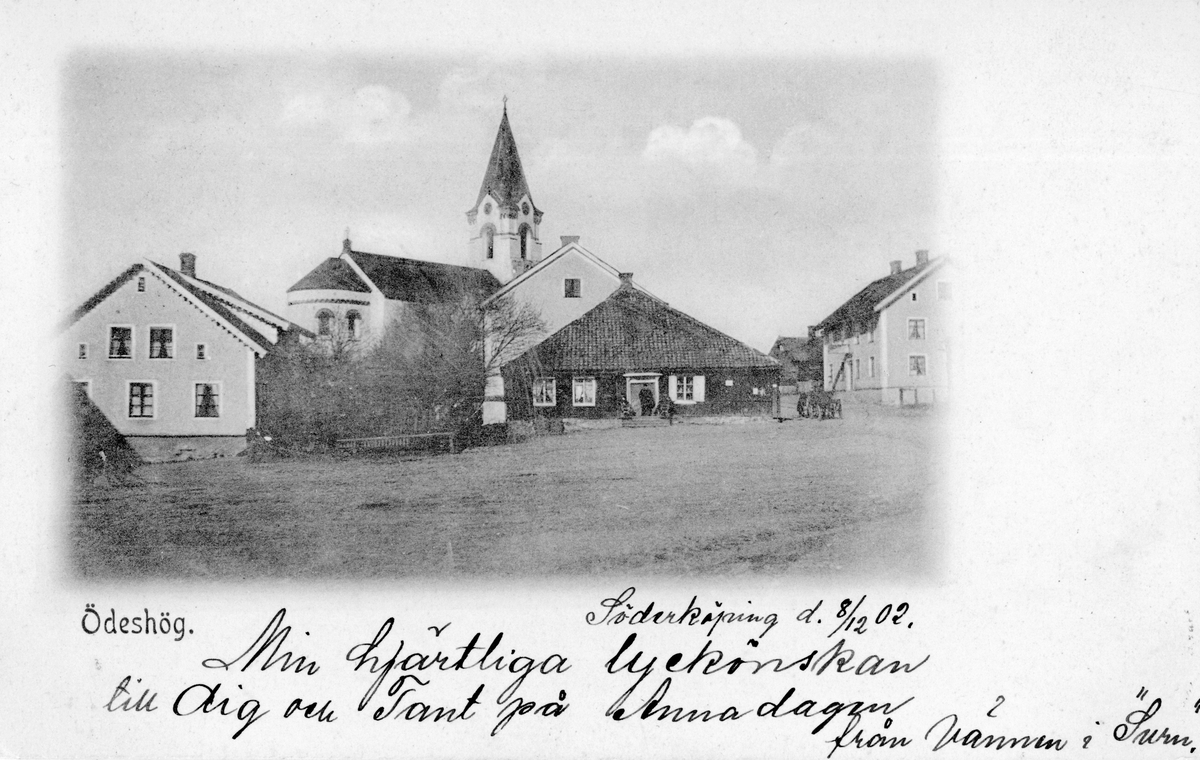 Ödeshög.
Söderköping d. 8/12 02.
Min hjärtliga lyckönskan
till dig och Tant på Annadagen
från Vännen i "Surn".